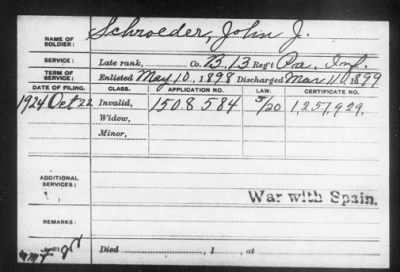 NAME OF SOLDIER: Schroeder, John J.
SERVICE: Late rank, Co. B, 13 Reg't Pa. Inf.
TERM OF SERVICE: Enlisted May 10, 1898 Discharged Mar 11, 1899
DATE OF FILING. CLASS. APPLICATION NO. LAW. CERTIFICATE NO.
1924 Oct 22 Invalid, 1508584 5/20 1,257,929.
Widow,
Minor,
ADDITIONAL SERVICES:
War with Spain.
REMARKS:
Died , 1 , at